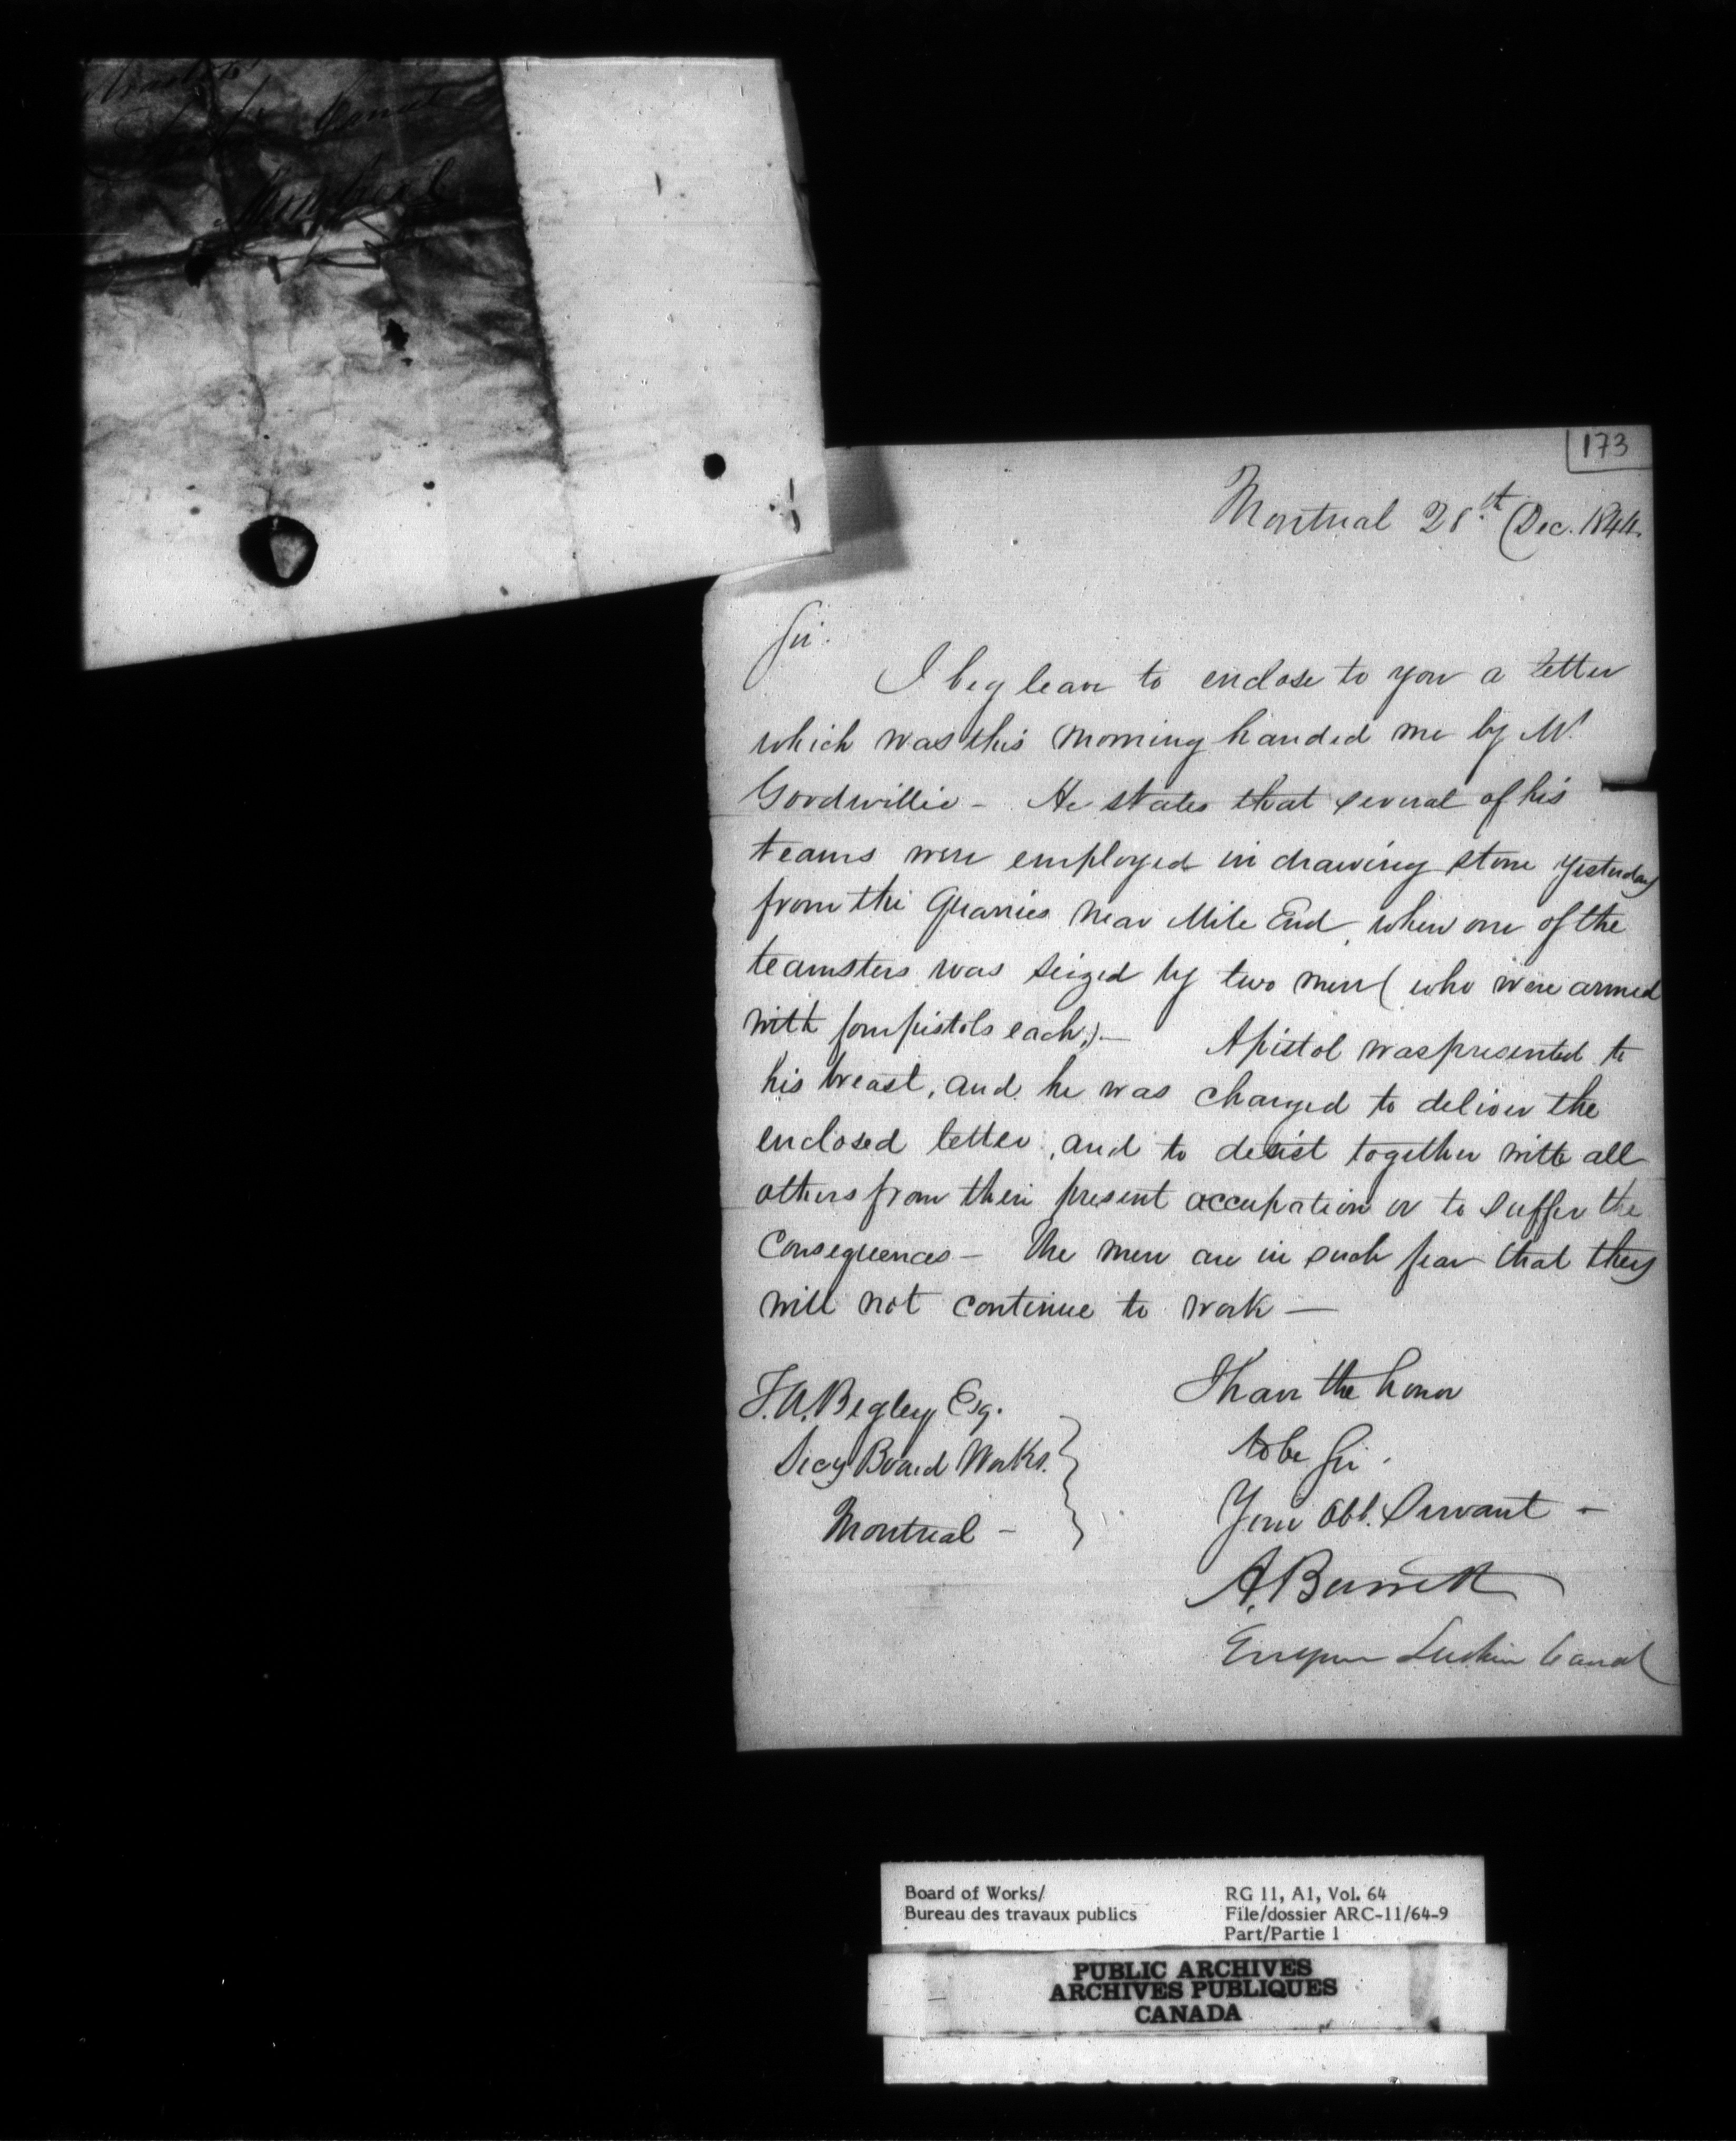 Canal
Montreal
173
Montreal 28th Dec. 1844.
Sir.
I beg leave to enclose to you a letter
which was this morning handed me by Mr
Goodwillie - He states that several of his
teams were employed in drawing stone yesterday
from the Quarries near Mile End, when one of the
teamsters was seized by two men (who were armed
with four pistols each.) - A pistol was presented to
his breast, and he was charged to deliver the
enclosed letter, and to desist together with all
others from their present occupation or to suffer the
Consequences - The men are in such fear that they
will not continue to work -
I have the honor
to be Sir.
Your Obt. Servant -
A. Barrett
Engineer Lachine Canal
F.A. Begley Esq.
Secy Board Works.
Montreal -
Board of Works/
Bureau des travaux publics
RG 11, A1, Vol. 64
File/dossier ARC-11/64-9
Part/Partie 1
PUBLIC ARCHIVES
ARCHIVES PUBLIQUES
CANADA